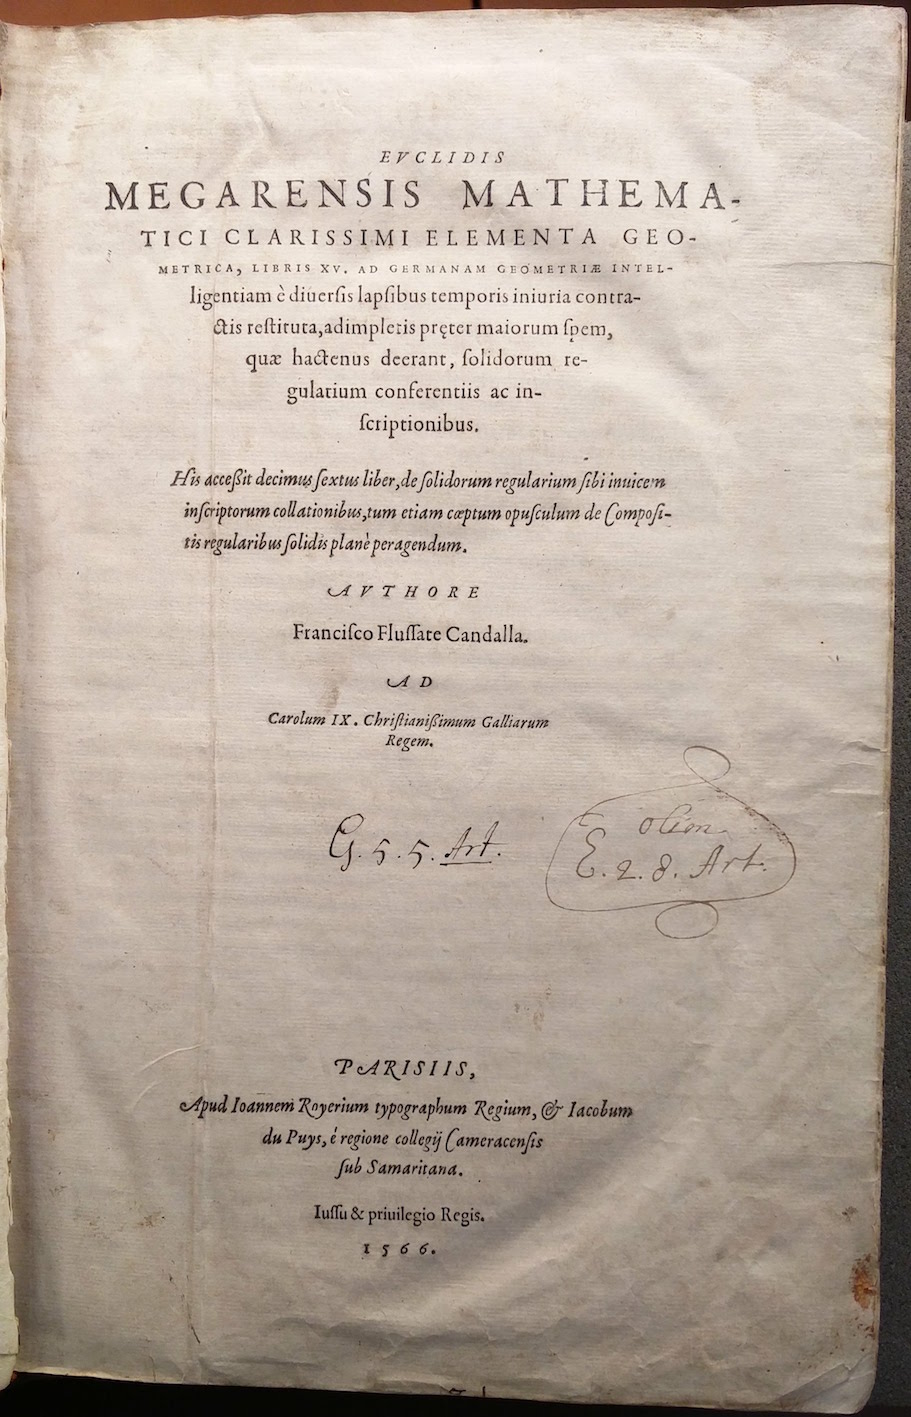 EVCLIDIS
MEGARENSIS MATHEMA-
TICI CLARISSIMI ELEMENTA GEO-
METRICA, LIBRIS XV. AD GERMANAM GEOMETRIÆ INTEL-
ligentiam è diuerſis lapſibus temporis iniuria contra-
ctis reſtituta,adimpletis pręter maiorum ſpem,
quæ hactenus deerant, ſolidorum re-
gularium conferentiis ac in-
ſcriptionibus.
His acceßit decimus ſextus liber,de ſolidorum regularium ſibi inuicem
inſcriptorum collationibus,tum etiam cœptum opuſculum de Compoſi-
tis regularibus ſolidis planè peragendum.
AVTHORE
Franciſco Fluſſate Candalla.
AD
Carolum IX. Chriſtianißimum Galliarum
Regem.
G. 5. 5. Art.
olim
E. 2. 8. Art.
PARISIIS,
Apud Ioannem Royerium typographum Regium, & Iacobum
du Puys, è regione collegij Cameracenſis
ſub Samaritana.
Iuſſu & priuilegio Regis.
1566.